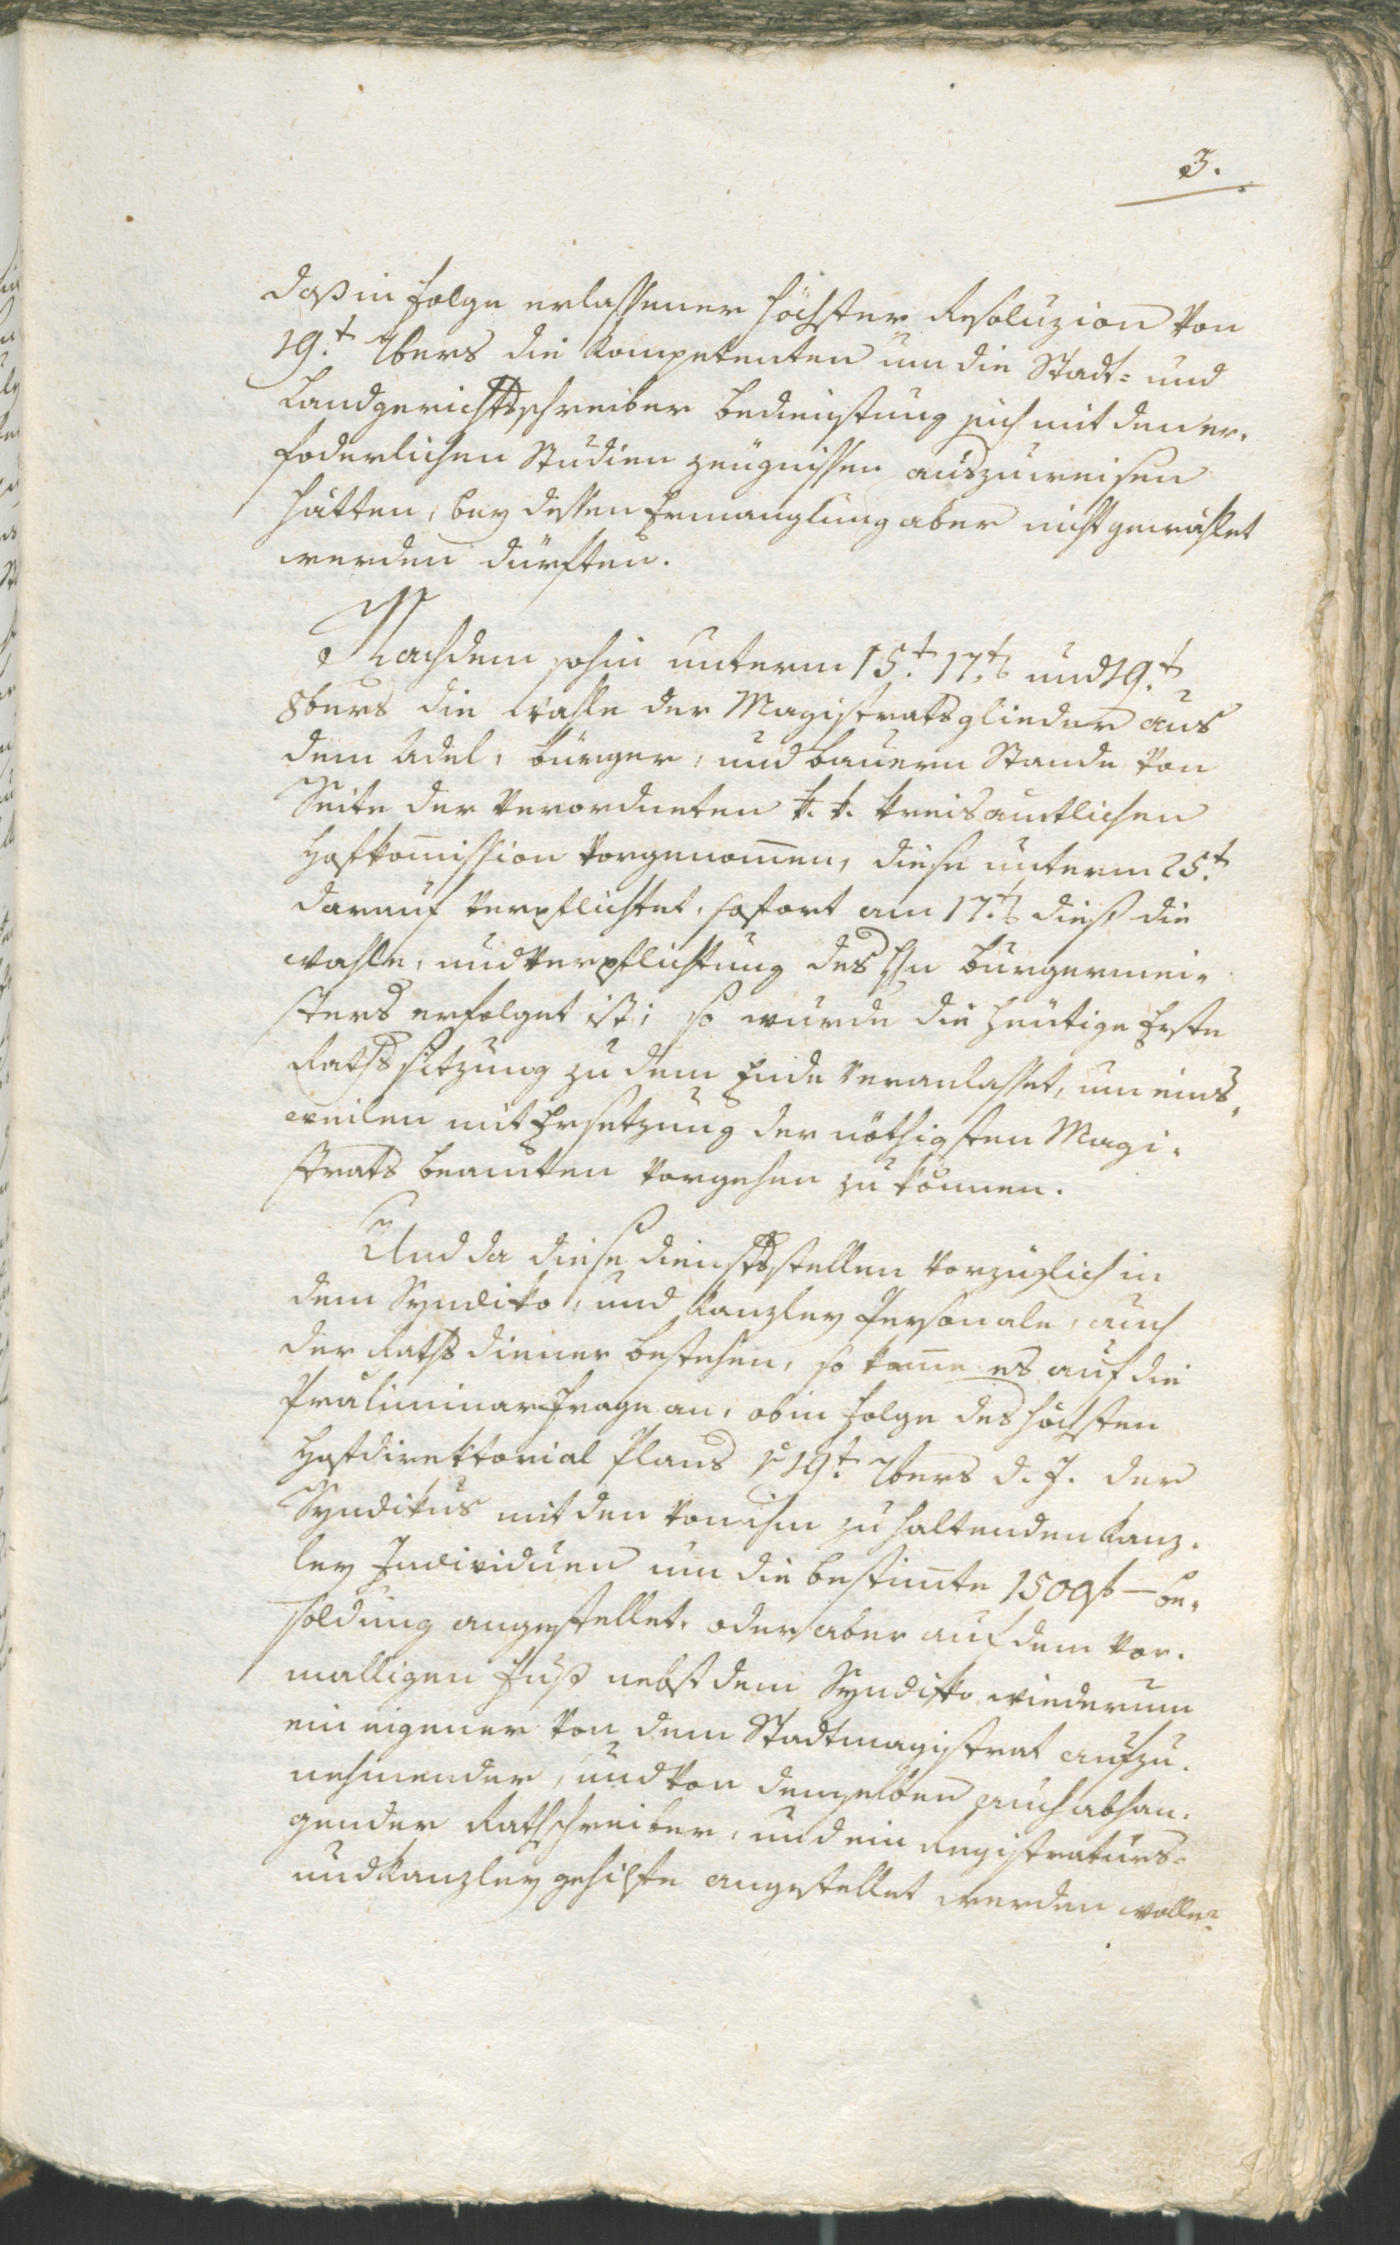 3.
daß in Folge erlassener höchster Resoluzion von
19.t 7bers die Kompetenten um die Stadt= und
Landgerichtsschreiber Bedienstung sich mit den er,
foderlichen Studien Zeügnissen auszuweisen
hätten, bey dessen Ermanglung aber nicht gewählet
werden dürften.
Nachdem sohin unterm 15.t 17.t und 19.t
8bers die Wahle der Magistratsglieder aus
dem Adel, Bürger, und Bauern Stande von
Seite der verordneten k. k. kreisamtlichen
Hofkom̅ission vorgenom̅en, diese unterm 25.t
darauf verpflichtet, sofort am 17.t dieß die
Wahle, und Verpflichtung des Hn Bürgermei,
sters erfolget ist; so wurde die heütige Erste
Rathssitzung zu dem Ende veranlasset, um eins,
weilen mit Ersetzung der nöthigsten Magi,
strats beamten vorgehen zu können.
Und da diese Dienstsstellen vorzüglich in
dem Syndiko, und Kanzley Personale, auch
der Rathsdiener bestehen, so kom̅e es auf die
Präliminar Frage an, ob in Folge des höchsten
Hofdirektorial Plans 19.t 7bers d. J. der
Syndikus mit den von ihm zu haltenden Kanz,
ley Individuen um die bestim̅te 1500f — Be,
soldung angestellet, oder aber auf dem vor,
malligen Fuß nebst dem Syndiko wiederum
ein eigener von dem Stadtmagistrat aufzu,
nehmender, und von demselben auch abhan,
gender Rathschreiber, und ein Registraturs=
und Kanzley gehilfe angestellet werden wolle?